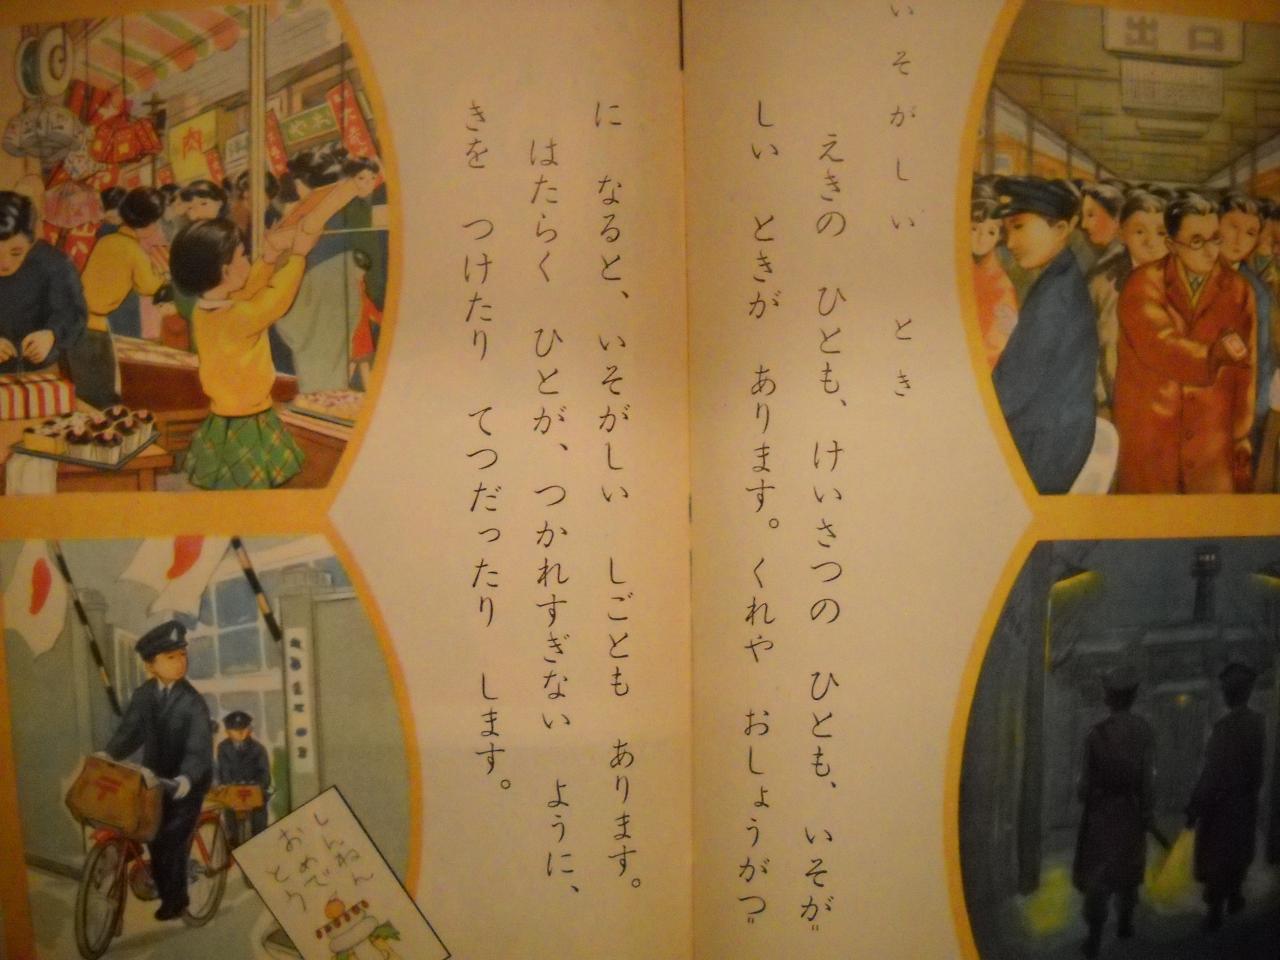 いそがしい とき
えきの ひとも、けいさつの ひとも、いそが
しい ときが あります。くれや おしょうがつ
に なると、いそがしい しごとも あります。
はたらく ひとが、つかれすぎない ように、
きを つけたり てつだったり します。
出口
肉
しんねん
おめでとう